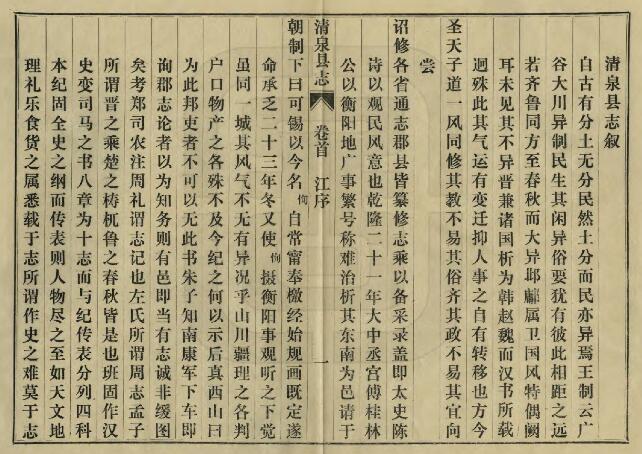 清泉县志叙
自古有分土无分民然土分而民亦异焉王制云广
谷大川异制民生其闲异俗要犹有彼此相距之远
若齐鲁同方至春秋而大异邶鄘属卫国风特偶阙
耳未见其不异晋兼诸国析为韩赵魏而汉书所载
迥殊此其气运有变迁抑人事之自有转移也方今
圣天子道一风同修其教不易其俗齐其政不易其宜向
尝
诏修各省通志郡县皆纂修志乘以备采录盖即太史陈
诗以观民风意也乾隆二十一年大中丞宫傅桂林
公以衡阳地广事繁号称难治析其东南为邑请于
清泉县志
卷首
江序
一
朝制下曰可锡以今名恂自常甯奉檄经始规画既定遂
命承乏二十三年冬又使恂摄衡阳事观听之下觉
虽同一城其风气不无有异况乎山川疆理之各判
户口物产之各殊不及今纪之何以示后真西山曰
为此邦吏者不可以无此书朱子知南康军下车即
询郡志论者以为知务则有邑即当有志诚非缓图
矣考郑司农注周礼谓志记也左氏所谓周志孟子
所谓晋之乘楚之梼杌鲁之春秋皆是也班固作汉
史变司马之书八章为十志而与纪传表分列四科
本纪固全史之纲而传表则人物尽之至如天文地
理礼乐食货之属悉载于志所谓作史之难莫于志